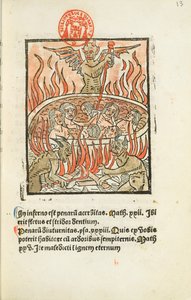 13
In inferno est penarū acerbitas. Math. xxii. Ibi
erit fletus et stridor dentium.
Penarū diuturnitas. ysa. xxxiii. Quis ex vobis
poterit habitare cū ardoribus sempiternis. Math
xxv. Ite maledicti ī ignem eternum